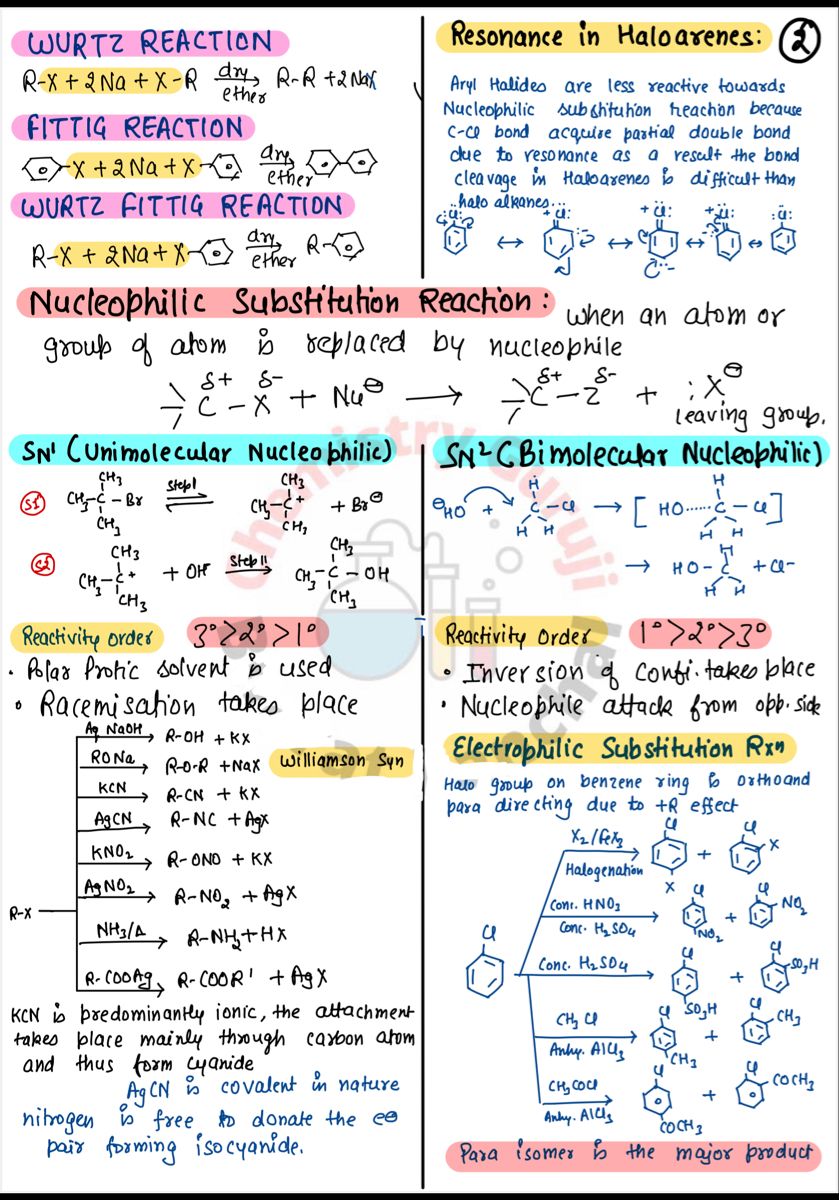 WURTZ REACTION
R-X + 2Na + X-R dry ether → R-R + 2NaX
FITTIG REACTION
-X + 2Na + X- dry ether →
WURTZ FITTIG REACTION
R-X + 2Na + X- dry ether → R-
Resonance in Haloarenes: 2
Aryl Halides are less reactive towards
Nucleophilic substitution reaction because
C-Cl bond acquire partial double bond
due to resonance as a result the bond
cleavage in Haloarenes is difficult than
halo alkanes.
:Cl: ↔ +Cl: ↔ +Cl: ↔ +Cl: ↔ :Cl:
Nucleophilic Substitution Reaction: when an atom or
group of atom is replaced by nucleophile
δ+ δ- δ+ δ-
C - X + Nu⊖ → C - Z + :X⊖
leaving group.
SN1 (Unimolecular Nucleophilic)
CH3 CH3
S1 CH3-C-Br Step I ⇌ CH3-C+ + Br⊖
CH3 CH3
CH3 CH3
S2 CH3-C+ + OH- Step II → CH3-C-OH
CH3 CH3
Reactivity order 3°>2°>1°
• Polar Protic solvent is used
• Racemisation takes place
SN2 (Bimolecular Nucleophilic)
H H
⊖HO + C-Cl → [HO......C-Cl]
H H H H
H
→ HO-C + Cl-
H H
Reactivity Order 1°>2°>3°
• Inversion of Confi. takes place
• Nucleophile attack from opp. side
Aq NaOH → R-OH + KX
RONa → R-O-R + NaX Williamson Syn
KCN → R-CN + KX
AgCN → R-NC + AgX
KNO2 → R-ONO + KX
AgNO2 → R-NO2 + AgX
R-X
NH3/Δ → R-NH2 + HX
R-COOAg → R-COOR' + AgX
KCN is predominantly ionic, the attachment
takes place mainly through carbon atom
and thus form cyanide
AgCN is covalent in nature
nitrogen is free to donate the e⊖
pair forming isocyanide.
Electrophilic Substitution Rxn
Halo group on benzene ring is ortho and
para directing due to +R effect
Cl Cl
X2/FeX3 → + X
Halogenation X
Cl Cl
Conc. HNO3 → + NO2
Conc. H2SO4 NO2
Cl
Cl Cl
Conc. H2SO4 → + SO3H
SO3H
Cl Cl
CH3Cl → + CH3
Anhy. AlCl3 CH3
Cl Cl
CH3COCl → + COCH3
Anhy. AlCl3 COCH3
Para isomer is the major product
Chemistry Guruji